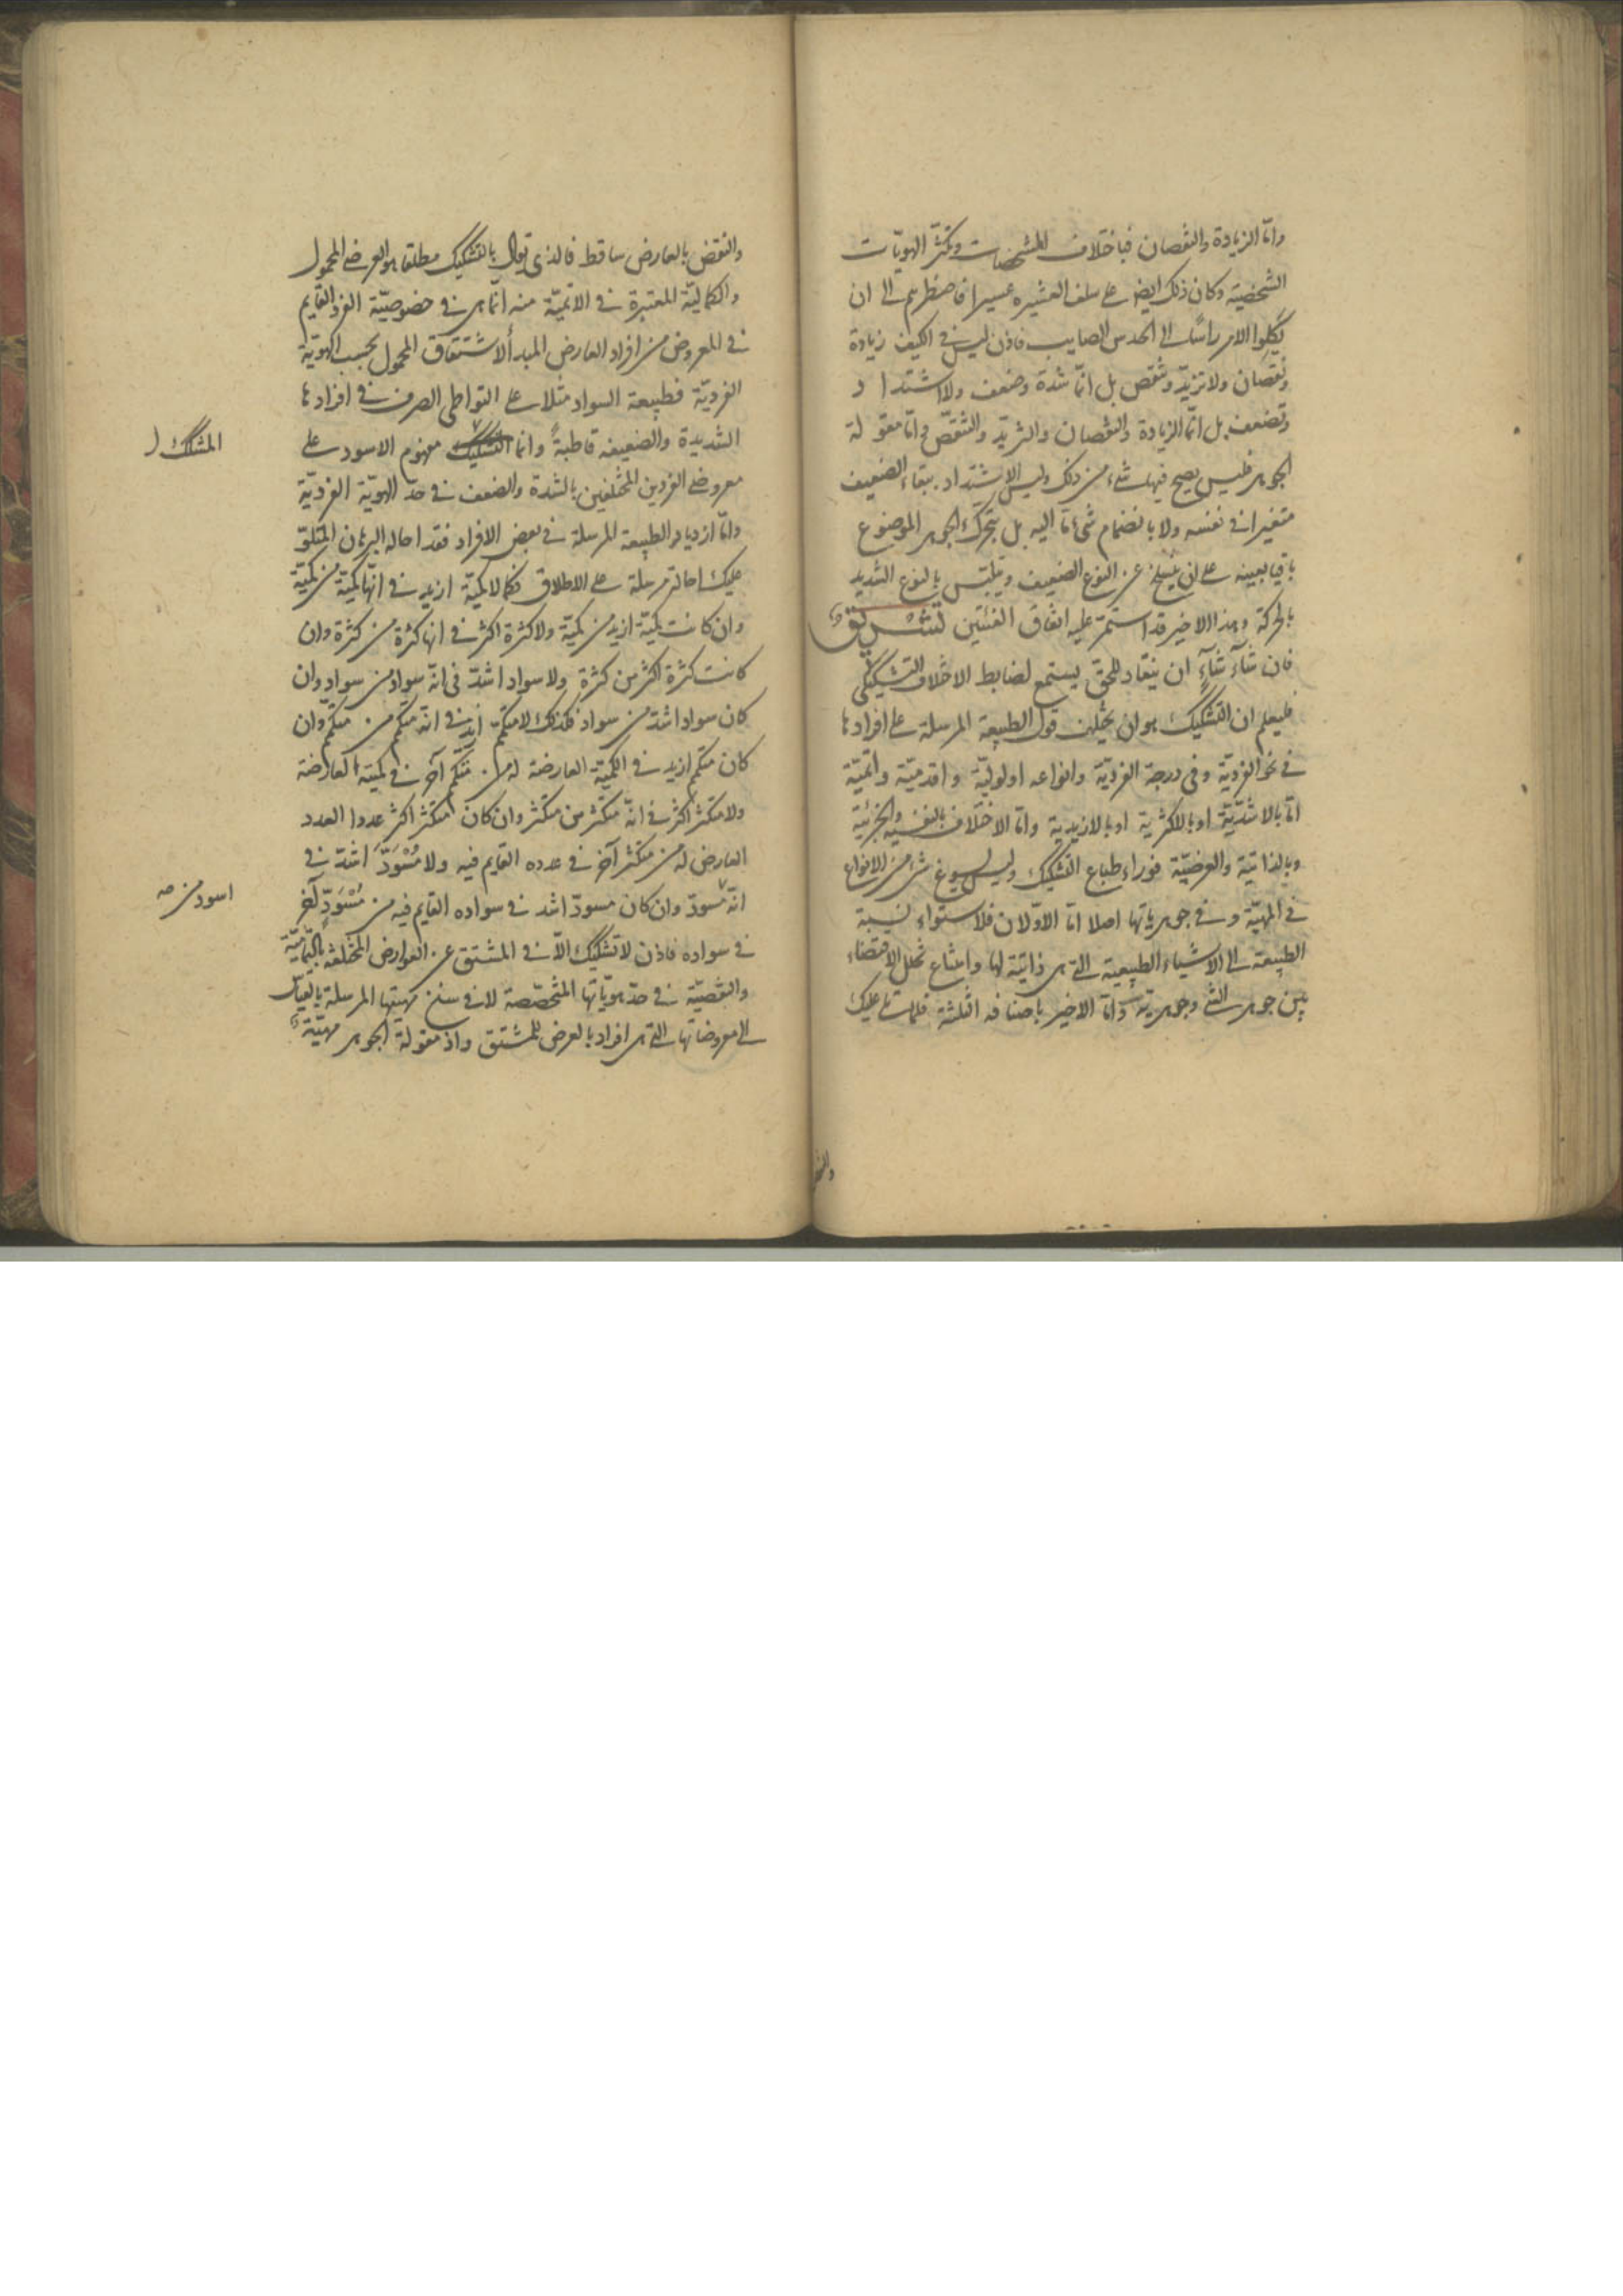 وامّا الزيادة والنقصان فباختلاف المشخصات وتكثّر الهويّات
الشخصية وكان ذلك ايضا على سلف العشيره عسيرا فاضطرهم الى ان
يكلوا الامر راسًا الى الحدس الصايب فاذن ليس فى الكيف زيادة
ونقصان ولا تزيّد وتنقص بل انما شدة وضعف ولا اشتداد
وتضعف بل انّما الزيادة والنقصان والتزيّد والتنقّص وامّا مقولة
الجوهر فليس يصح فيها شىء من ذلك وليس الاشتداد ببقاء الضعيف
متغيرا فى نفسه ولا بانضمام شىء ما اليه بل بتحرّك الجوهر الموضوع
باقيا بعينه على ان ينسلخ عن النوع الضعيف ويتلبّس بالنوع الشديد
بالحركة وهذا الاخير قد استمرّ عليه اتفاق الفئتين تشريق
فان شآء شآءٍ ان ينقاد للحق يستمع لضابط الاختلاف التشكيكى
فليعلم ان التشكيك هو ان يختلف قول الطبيعة المرسلة على افرادها
فى نحو الفرديّة وفى درجة الفرديّة وانواعه اولويّة واقدميّة واتميّة
امّا بالاشدّيّة او بالاكثرية او بالازيدية وامّا الاختلاف بالنفسية والجزئية
وبالذاتية والعرضيّة فوراء طباع التشكيك وليس يسوغ شىء من الانواع
فى المهيّة وفى جوهرياتها اصلا امّا الاوّلان فلاستواء نسبة
الطبيعة الى الاشياء الطبيعية التى هى ذاتية لها وامتناع تخلل الاقتضاء
بين جوهر الشىء وجوهرياته وامّا الاخير باصنافه الثلثة فلما تلى عليك
والنقض بالعارض ساقط فالذى يقال بالتشكيك مطلقا هو العرضى المحمول
والكمالية المعتبرة فى الاتميّة منه انّما هى فى خصوصيّة الفرد القايم
فى المعروض من افراد العارض المبدأ لاشتقاق المحمول بحسب الهويّة
الفرديّة فطبيعة السواد مثلا على التواطى الصرف فى افرادها
الشديدة والضعيفه قاطبةً وانما التشكيك مفهوم الاسود على
المشكك
معروضى الفردين المختلفين بالشدة والضعف فى حد الهويّة الفرديّة
وامّا ازدياد الطبيعة المرسلة فى بعض الافراد فقد احاله البرهان المتلوّ
عليك احالة مرسلة على الاطلاق فكما لا كميّة ازيد فى انّها كميّة من كميّة
وان كانت كميّة ازيد من كميّة ولا كثرة اكثر فى انها كثرة من كثرة وان
كانت كثرة اكثر من كثرة ولا سواد اشدّ فى انّه سواد من سواد وان
كان سواد اشدّ من سواد فكذلك لا متكمّم ازيد فى انه متكمّم من متكمّم وان
كان متكمّم ازيد فى الكميّة العارضة له من متكمّم آخر فى كميّته العارضة
ولا متكثر اكثر فى انّه متكثر من متكثر وان كان متكثر اكثر عددا العدد
العارض له من متكثر آخر فى عدده القايم فيه ولا مُسْوَدّ اشدّ فى
انه مسودّ وان كان مسودّ اشد فى سواده القايم فيه من مُسْوَدّ آخر
اسود من صه
فى سواده فاذن لا تشكيك الّا فى المشتق عن العوارض المختلفة بالتماميّة
والنقصيّة فى حدّ هويّاتها المتحصّصة لا فى سنخ مهيتها المرسلة بالقياس
الى معروضاتها التى هى افراد بالعرض للمشتق واذ مقولة الجوهر مهيّة